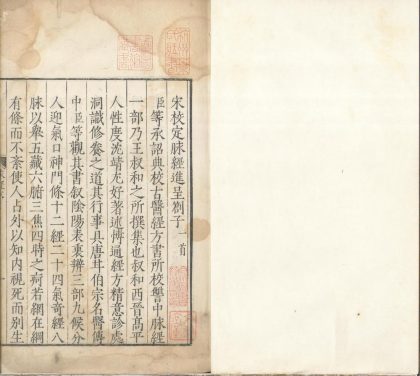 宋校定脉經進呈劄子一首
臣等承詔典校古醫經方書所校讐中脉經
一部乃王叔和之所撰集也叔和西晉高平
人性度沈靖尤好著述博通經方精意診處
洞識修養之道其行事具唐甘伯宗名醫傳
中臣等觀其書叙陰陽表裏辨三部九候分
人迎氣口神門條十二經二十四氣竒經八
脉以舉五藏六腑三焦四時之疴若網在綱
有條而不紊使人占外以知内視死而別生